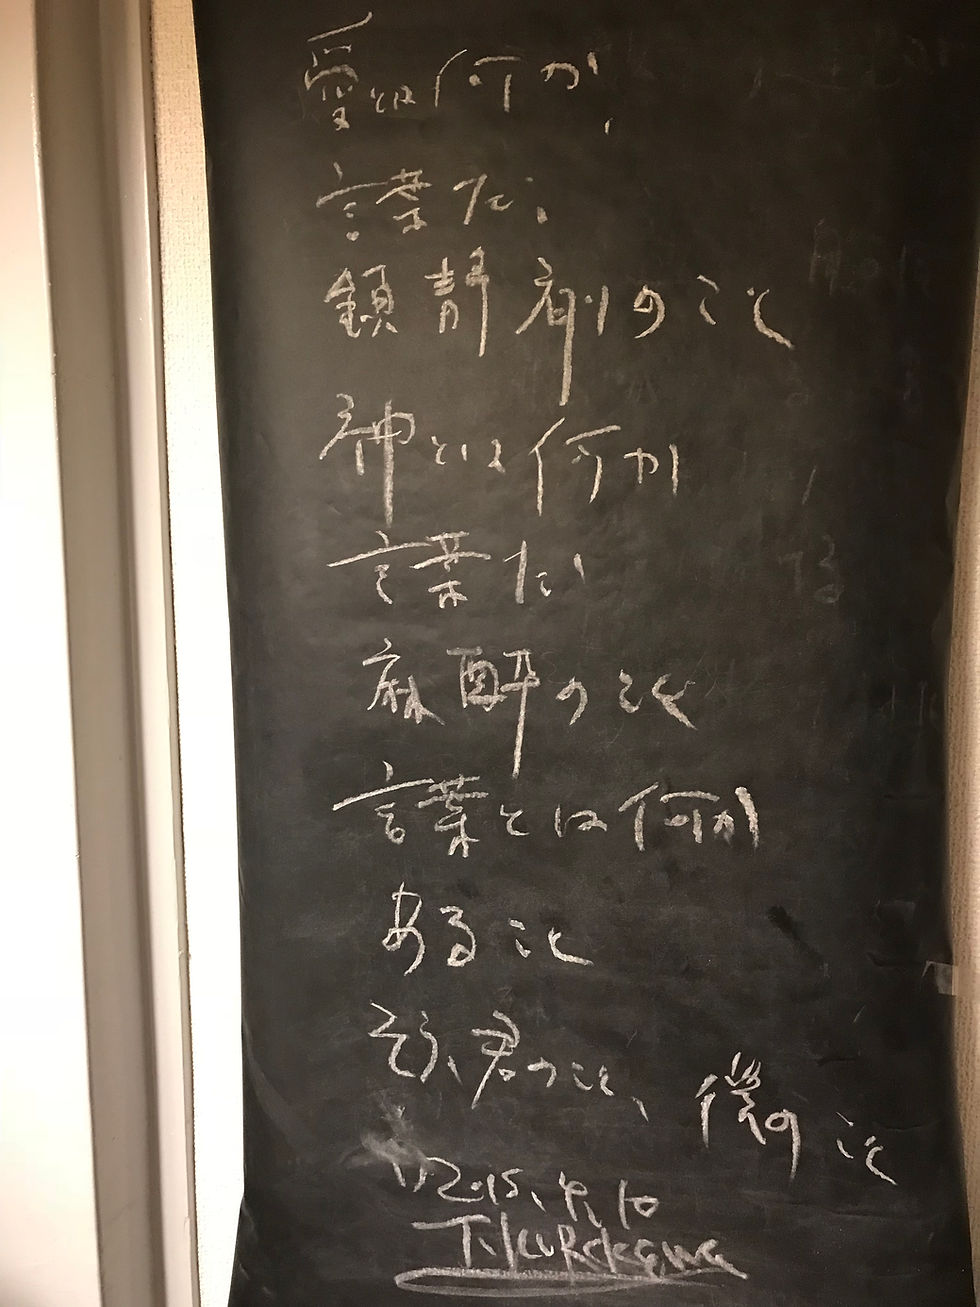 愛とは何か、
言葉だ、
鎮静剤のこと
神とは何か
言葉だ
麻酔のこと
言葉とは何か
あること
そう、君のこと、僕のこと
2015、9、10
T.kurokawa